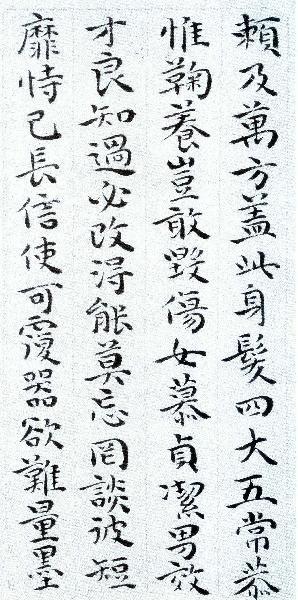 賴及萬方蓋此身髮四大五常恭
惟鞠養豈敢毀傷女慕貞潔男效
才良知過必改得能莫忘罔談彼短
靡恃己長信使可覆器欲難量墨